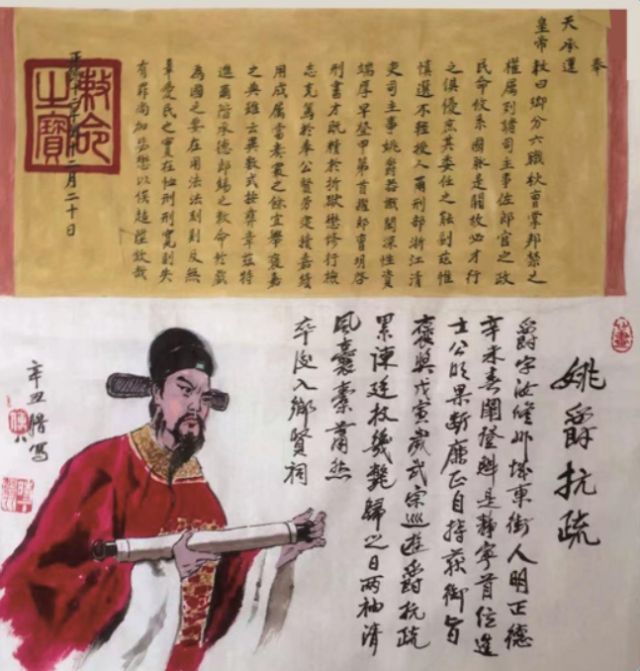 奉
天承運
皇帝敕曰鄉分六職秋曹掌邦禁之
權屬列諸司主事佐郎官之政
民命攸系國脉是關故必才行
之俱優庶其委任之能副茲惟
慎選不輕授人爾刑部浙江清
吏司主事姚爵器識閎深性資
端厚早登甲第首擢郎曹明啓
刑書才既精於折獄懋修行檢
志克篤於奉公賢勞定積嘉績
用成屬當奏最之餘宜舉褒嘉
之典雖云異數式按彝章茲特
進爾階承德郎錫之敕命於戲
為國之要在用法法刻則及無
辜受民之寶在恤刑刑寬則失
有罪尚加勉懋以俟超擢欽哉
正德十年十二月二十日
敕命之寶
姚爵抗疏
爵字汝脩州城東街人明正德
辛未春闈登魁是靜寧首位進
士公明果斷廉正自持荻御旨
褒奬戊寅歲武宗巡遊爵抗疏
累諫廷杖幾斃歸之日兩袖清
風囊橐蕭然
卒後入鄉賢祠
辛丑 寫